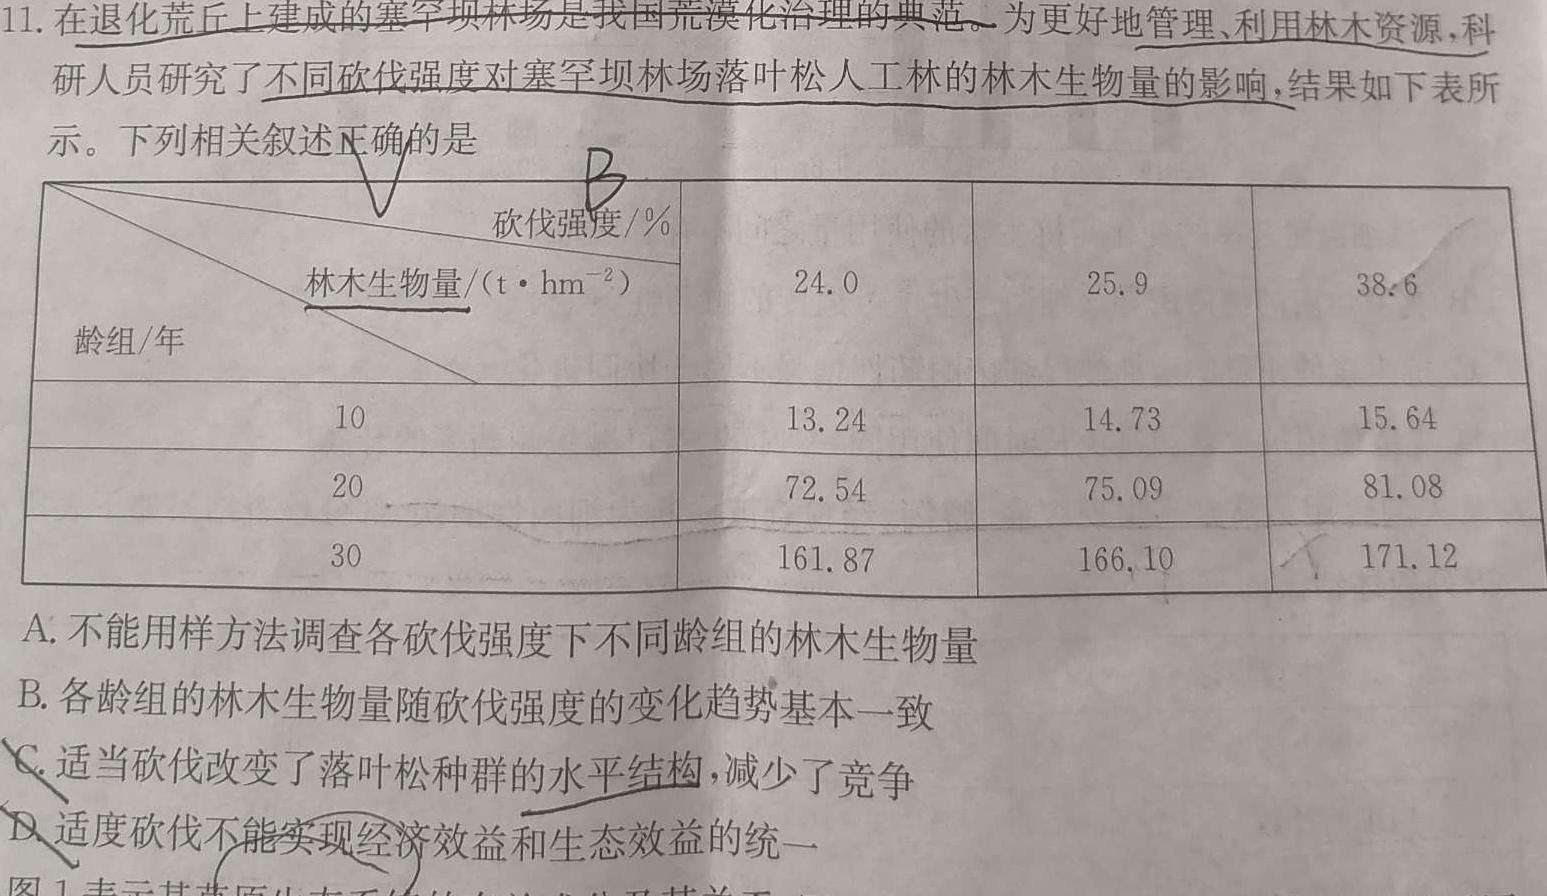 11. 在退化荒丘上建成的塞罕坝林场是我国荒漠化治理的典范。为更好地管理、利用林木资源,科
研人员研究了不同砍伐强度对塞罕坝林场落叶松人工林的林木生物量的影响,结果如下表所
示。下列相关叙述正确的是
B
砍伐强度/% 24.0 25.9 38.6
林木生物量/(t·hm⁻²)
龄组/年
10 13.24 14.73 15.64
20 72.54 75.09 81.08
30 161.87 166.10 171.12
A. 不能用样方法调查各砍伐强度下不同龄组的林木生物量
B. 各龄组的林木生物量随砍伐强度的变化趋势基本一致
C. 适当砍伐改变了落叶松种群的水平结构,减少了竞争
D. 适度砍伐不能实现经济效益和生态效益的统一
图1表示某草原生态系统